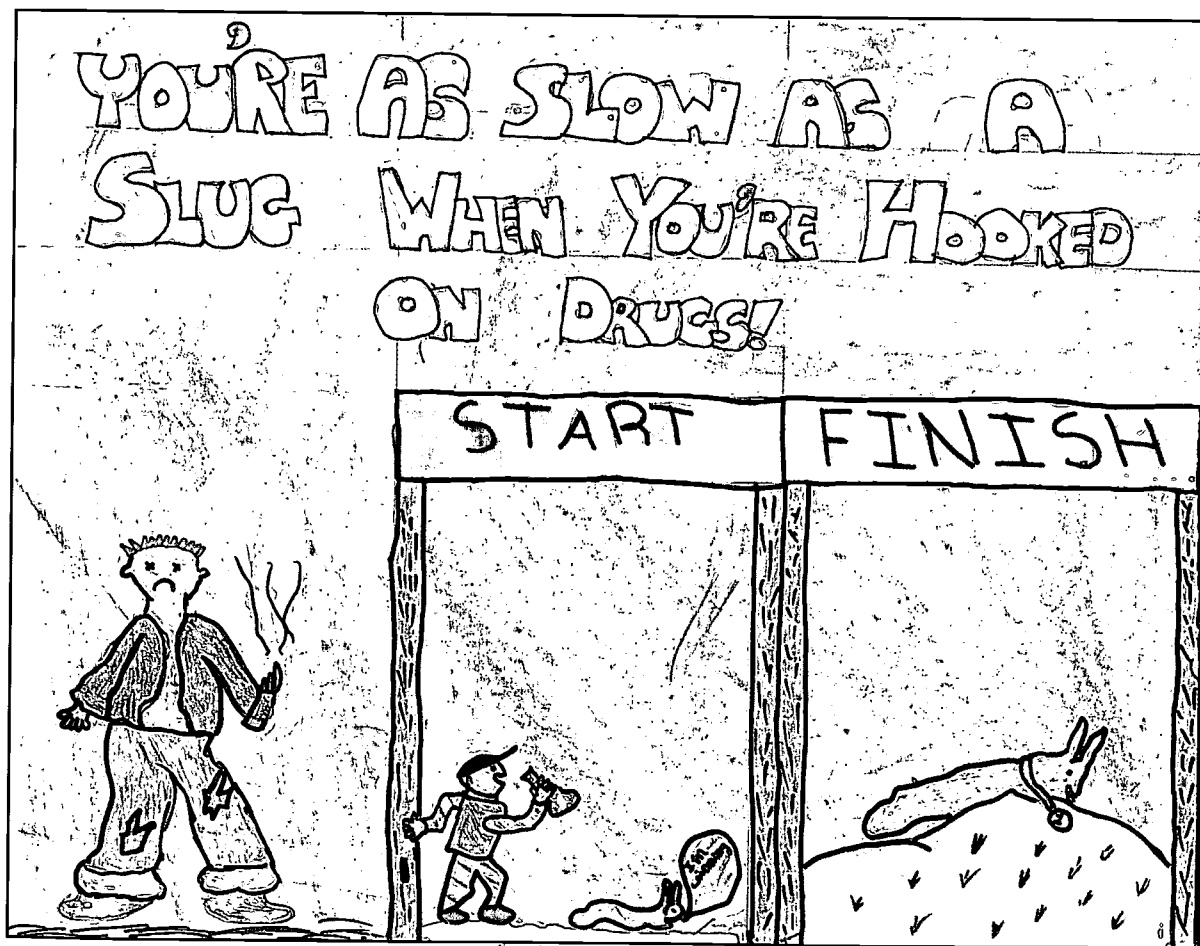 YOU'RE AS SLOW AS A
SLUG WHEN YOU'RE HOOKED
ON DRUGS!
START FINISH
I'M
winning